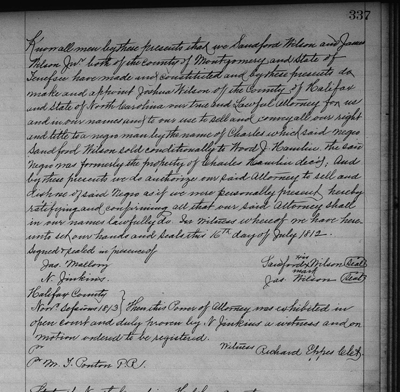 337
Know all men by these presents that we Sandford Wilson and James
Wilson Junr both of the county of Montgomery and State of
Tennessee have made and constituted and by these presents do
make and appoint Joshua Wilson of the County of Halifax
and State of North Carolina our true and Lawful Attorney for us
and in our names and to our use to sell and convey all our right
and title to a negro man by the name of Charles which said negro
Sandford Wilson sold conditionally to Wood J. Hamlin the said
Negro was formerly the property of Charles Hamlin decd, And
by these presents we do authorize our said Attorney to sell and
dispose of said Negro as if we were personally present hereby
ratifying and confirming all that our said Attorney shall
in our name lawfully do. In Witness whereof we have here
unto set our hands and seals this 16th day of July 1812.
Signed & sealed in presence of
Jas. Mallory
N. Jinkins.
his
Sandford x Wilson (Seal)
mark
Jas Wilson (Seal)
Halifax County
Novr Sessions 1813 } Then this Power of Attorney was exhibited in
open court and duly proven by N Jinkins a witness and on
motion ordered to be registered.
Witness Richard Eppes Clk
Pr M. T. Ponton P.R.